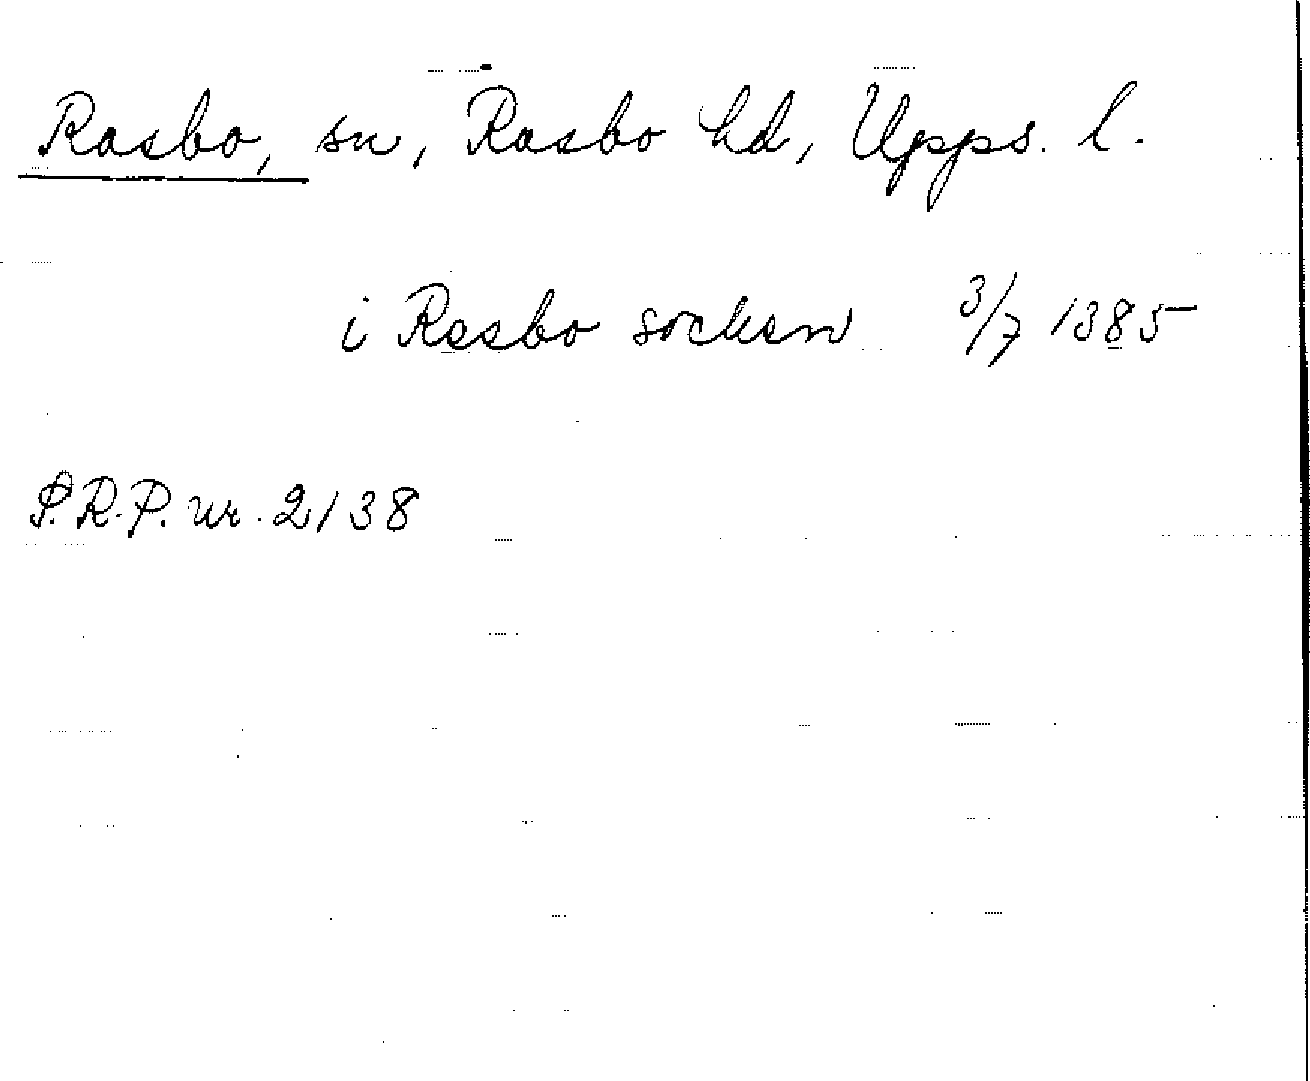 Rasbo, sn, Rasbo hd, Upps. l.
i Rasbo socken 3/7 1385
S.R.P. nr. 2138